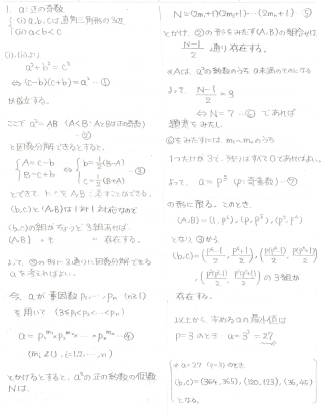 1. a: 正の奇数
(i) a, b, c は, 直角三角形の3辺
(ii) a < b < c
(i), (ii) より
a² + b² = c²
⇔ (c-b)(c+b) = a² …①
が成立する。
ここで a² = AB (A<B: AとBは正の奇数)
…②
と因数分解できるとすると、
A = c-b
B = c+b
⇔
b = ½(B-A)
c = ½(B+A)
…③
(b, c) と (A, B) は 1対1対応なので
(b, c) の組がちょうど3組あれば、
(A, B) 〃 も 〃 存在する。
よって、②の形に3通りに因数分解できる
a を考えればよい。
今、a が素因数 p₁, …, pₙ (n≧1)
を用いて (3≦p₁<p₂<…<pₙ)
a = p₁^m₁ × p₂^m₂ × … × pₙ^mₙ …④
(mᵢ ≧ 1, i=1,2,…,n)
とかけるとすると、a² の正の約数の個数
N は、
N = (2m₁+1)(2m₂+1)…(2mₙ+1) …⑤
とかけ、②の形をみたす (A, B) の組合せは、
(N-1)/2 通り存在する。
※Aは、a²の約数のうち a 未満のものになる
よって、(N-1)/2 = 3
⇔ N = 7 …⑥ であれば
題意をみたし、
⑥をみたすには、m₁~mₙ のうち
1つだけが3で、残りはすべて0であればよい。
よって、a = p³ (p: 奇素数) …⑦
の形に限る。このとき、
(A, B) = (1, p⁶), (p, p⁵), (p², p⁴)
となり、③から、
(b, c) = ((p⁶-1)/2, (p⁶+1)/2), (p(p⁴-1)/2, p(p⁴+1)/2)
, (p²(p²-1)/2, p²(p²+1)/2) の3組が
存在する。
以上から、求める a の最小値は
p = 3 のとき a = 3³ = 27
※ a = 27 (p=3) のとき、
(b, c) = (364, 365), (120, 123), (36, 45)
となる。